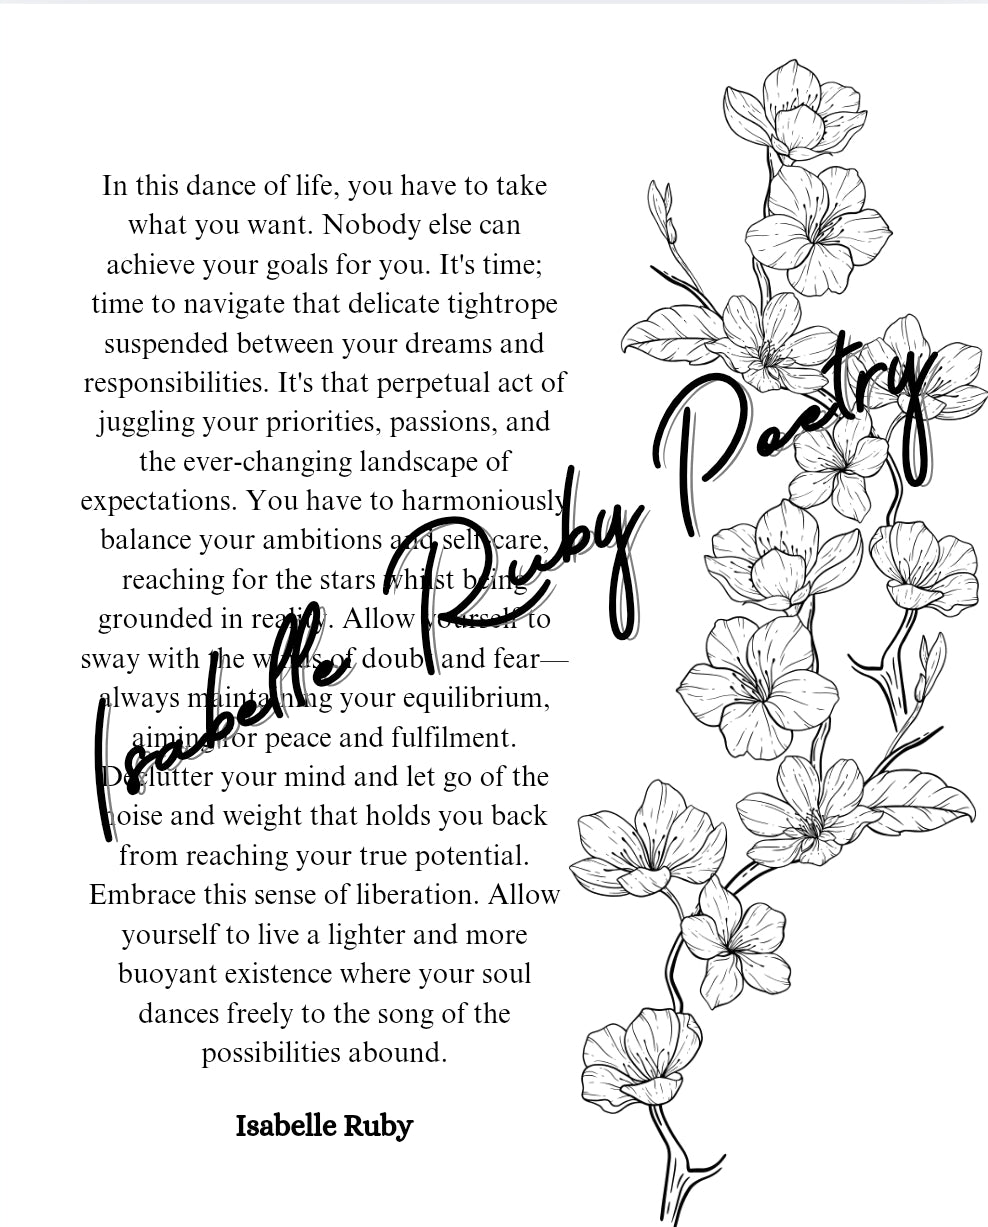 In this dance of life, you have to take
what you want. Nobody else can
achieve your goals for you. It's time;
time to navigate that delicate tightrope
suspended between your dreams and
responsibilities. It's that perpetual act of
juggling your priorities, passions, and
the ever-changing landscape of
expectations. You have to harmoniously
balance your ambitions and self-care,
reaching for the stars whilst being
grounded in reality. Allow yourself to
sway with the winds of doubt and fear—
always maintaining your equilibrium,
aiming for peace and fulfilment.
Declutter your mind and let go of the
noise and weight that holds you back
from reaching your true potential.
Embrace this sense of liberation. Allow
yourself to live a lighter and more
buoyant existence where your soul
dances freely to the song of the
possibilities abound.
Isabelle Ruby
Isabelle Ruby Poetry